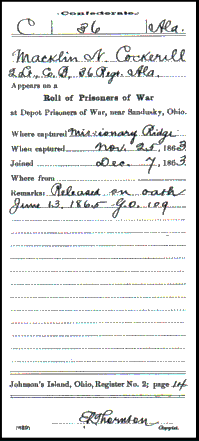 Confederate.
C 36 Ala.
Macklin N. Cockerill
2 Lt., Co. B, 36 Regt. Ala.
Appears on a
Roll of Prisoners of War
at Depot Prisoners of War, near Sandusky, Ohio.
Where captured Missionary Ridge
When captured Nov. 25, 1863
Joined Dec. 7, 1863
Where from
Remarks: Released on oath
June 13, 1865 G.O. 109
Johnson's Island, Ohio, Register No. 2; page 14
Thornton
Copyist.